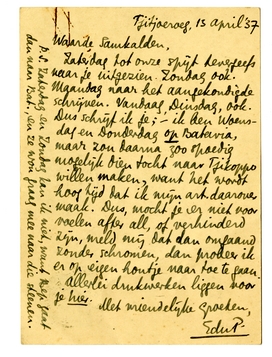 Tjitjoeroeg, 15 April '37
Waarde Samkalden,
Zaterdag tot onze spijt tevergeefs
naar je uitgezien. Zondag ook.
Maandag naar het aangekondigde
schrijven. Vandaag, Dinsdag, ook.
Dus schrijf ik je; – ik den Woens-
dag en Donderdag op Batavia,
maar zou daarna zoo spoedig
mogelijk dien tocht naar Tjikoppo
willen maken, want het wordt
hoog tijd dat ik mijn art daarover
maak. Dus, mocht je er niet voor
voelen after all, of verhinderd
zijn, meld mij dat dan omgaand
zonder schromen, dan probeer ik
er op eigen houtje naar toe te gaan.
Allerlei drukwerken liggen voor
je hier.
Met vriendelijke groeten,
EduP.
P.S. Zaterdag en Zondag kan ik niet, want Bep gaat
dan naar Bat. en ze wou graag mee naar die